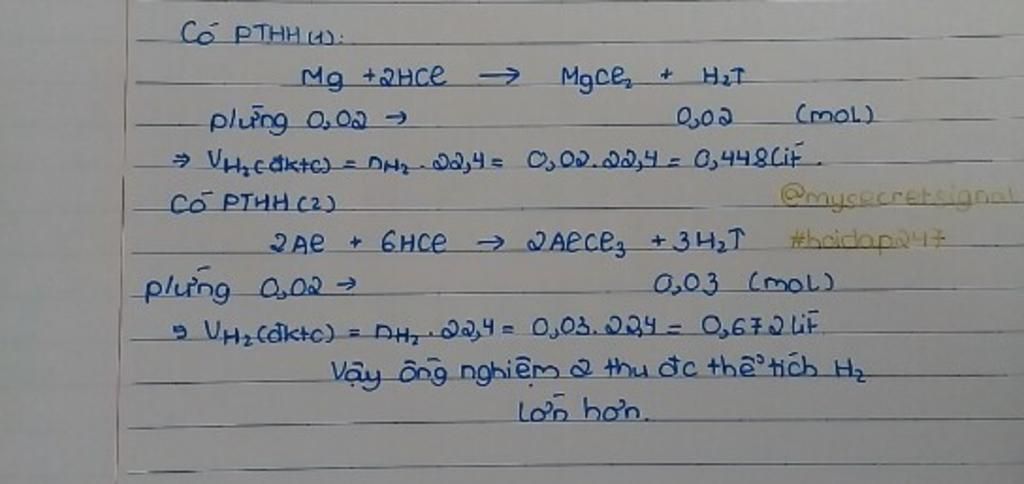 Có PTHH(1):
Mg + 2HCl → MgCl₂ + H₂↑
p/ứng 0,02 → 0,02 (mol)
⇒ VH₂(đktc) = nH₂ . 22,4 = 0,02.22,4 = 0,448 lít.
Có PTHH(2)
@mysecretsignal
2Al + 6HCl → 2AlCl₃ + 3H₂↑ #hoidap247
p/ứng 0,02 → 0,03 (mol)
⇒ VH₂(đktc) = nH₂ . 22,4 = 0,03.22,4 = 0,672 lít.
Vậy ống nghiệm 2 thu đc thể tích H₂
lớn hơn.